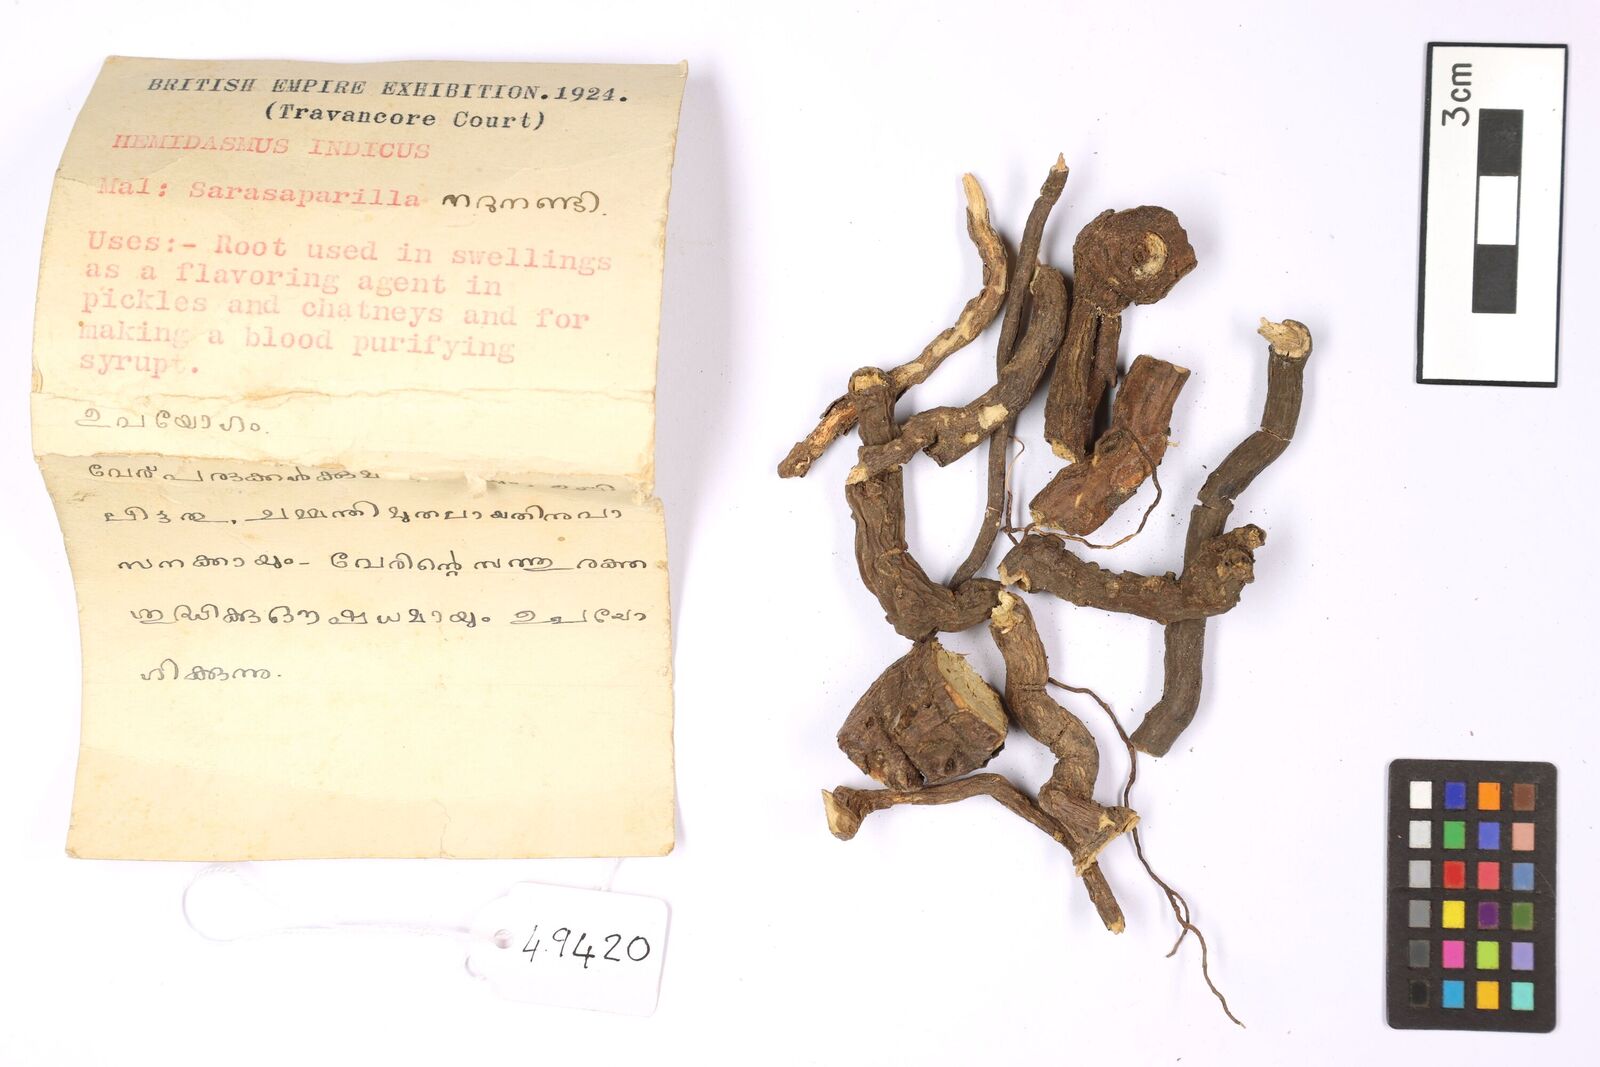 BRITISH EMPIRE EXHIBITION.1924.
(Travancore Court)
HEMIDASMUS INDICUS
Mal: Sarasaparilla നറുനണ്ടി.
Uses:- Root used in swellings
as a flavoring agent in
pickles and chatneys and for
making a blood purifying
syrupt.
ഉപയോഗം.
വേര് പരുക്കൾക്കും
ചമ്മന്തി മുതലായതിനു വാ
സനക്കായും - വേരിന്റെ സത്തു രക്ത
ശുദ്ധിക്കു ഔഷധമായും ഉപയോ
ഗിക്കുന്നു.
49420
3cm